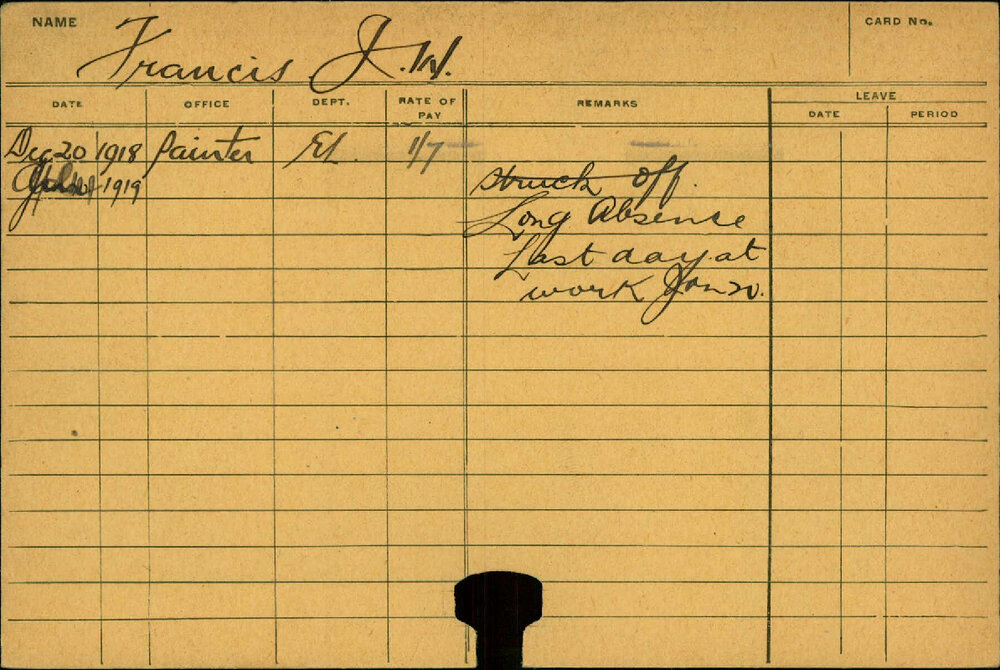 NAME Francis J. W. CARD No.
DATE OFFICE DEPT. RATE OF PAY REMARKS LEAVE
DATE PERIOD
Dec 20 1918 Painter El. 1/7
1919 Struck off.
Long Absence
Last day at
work Jan 20.